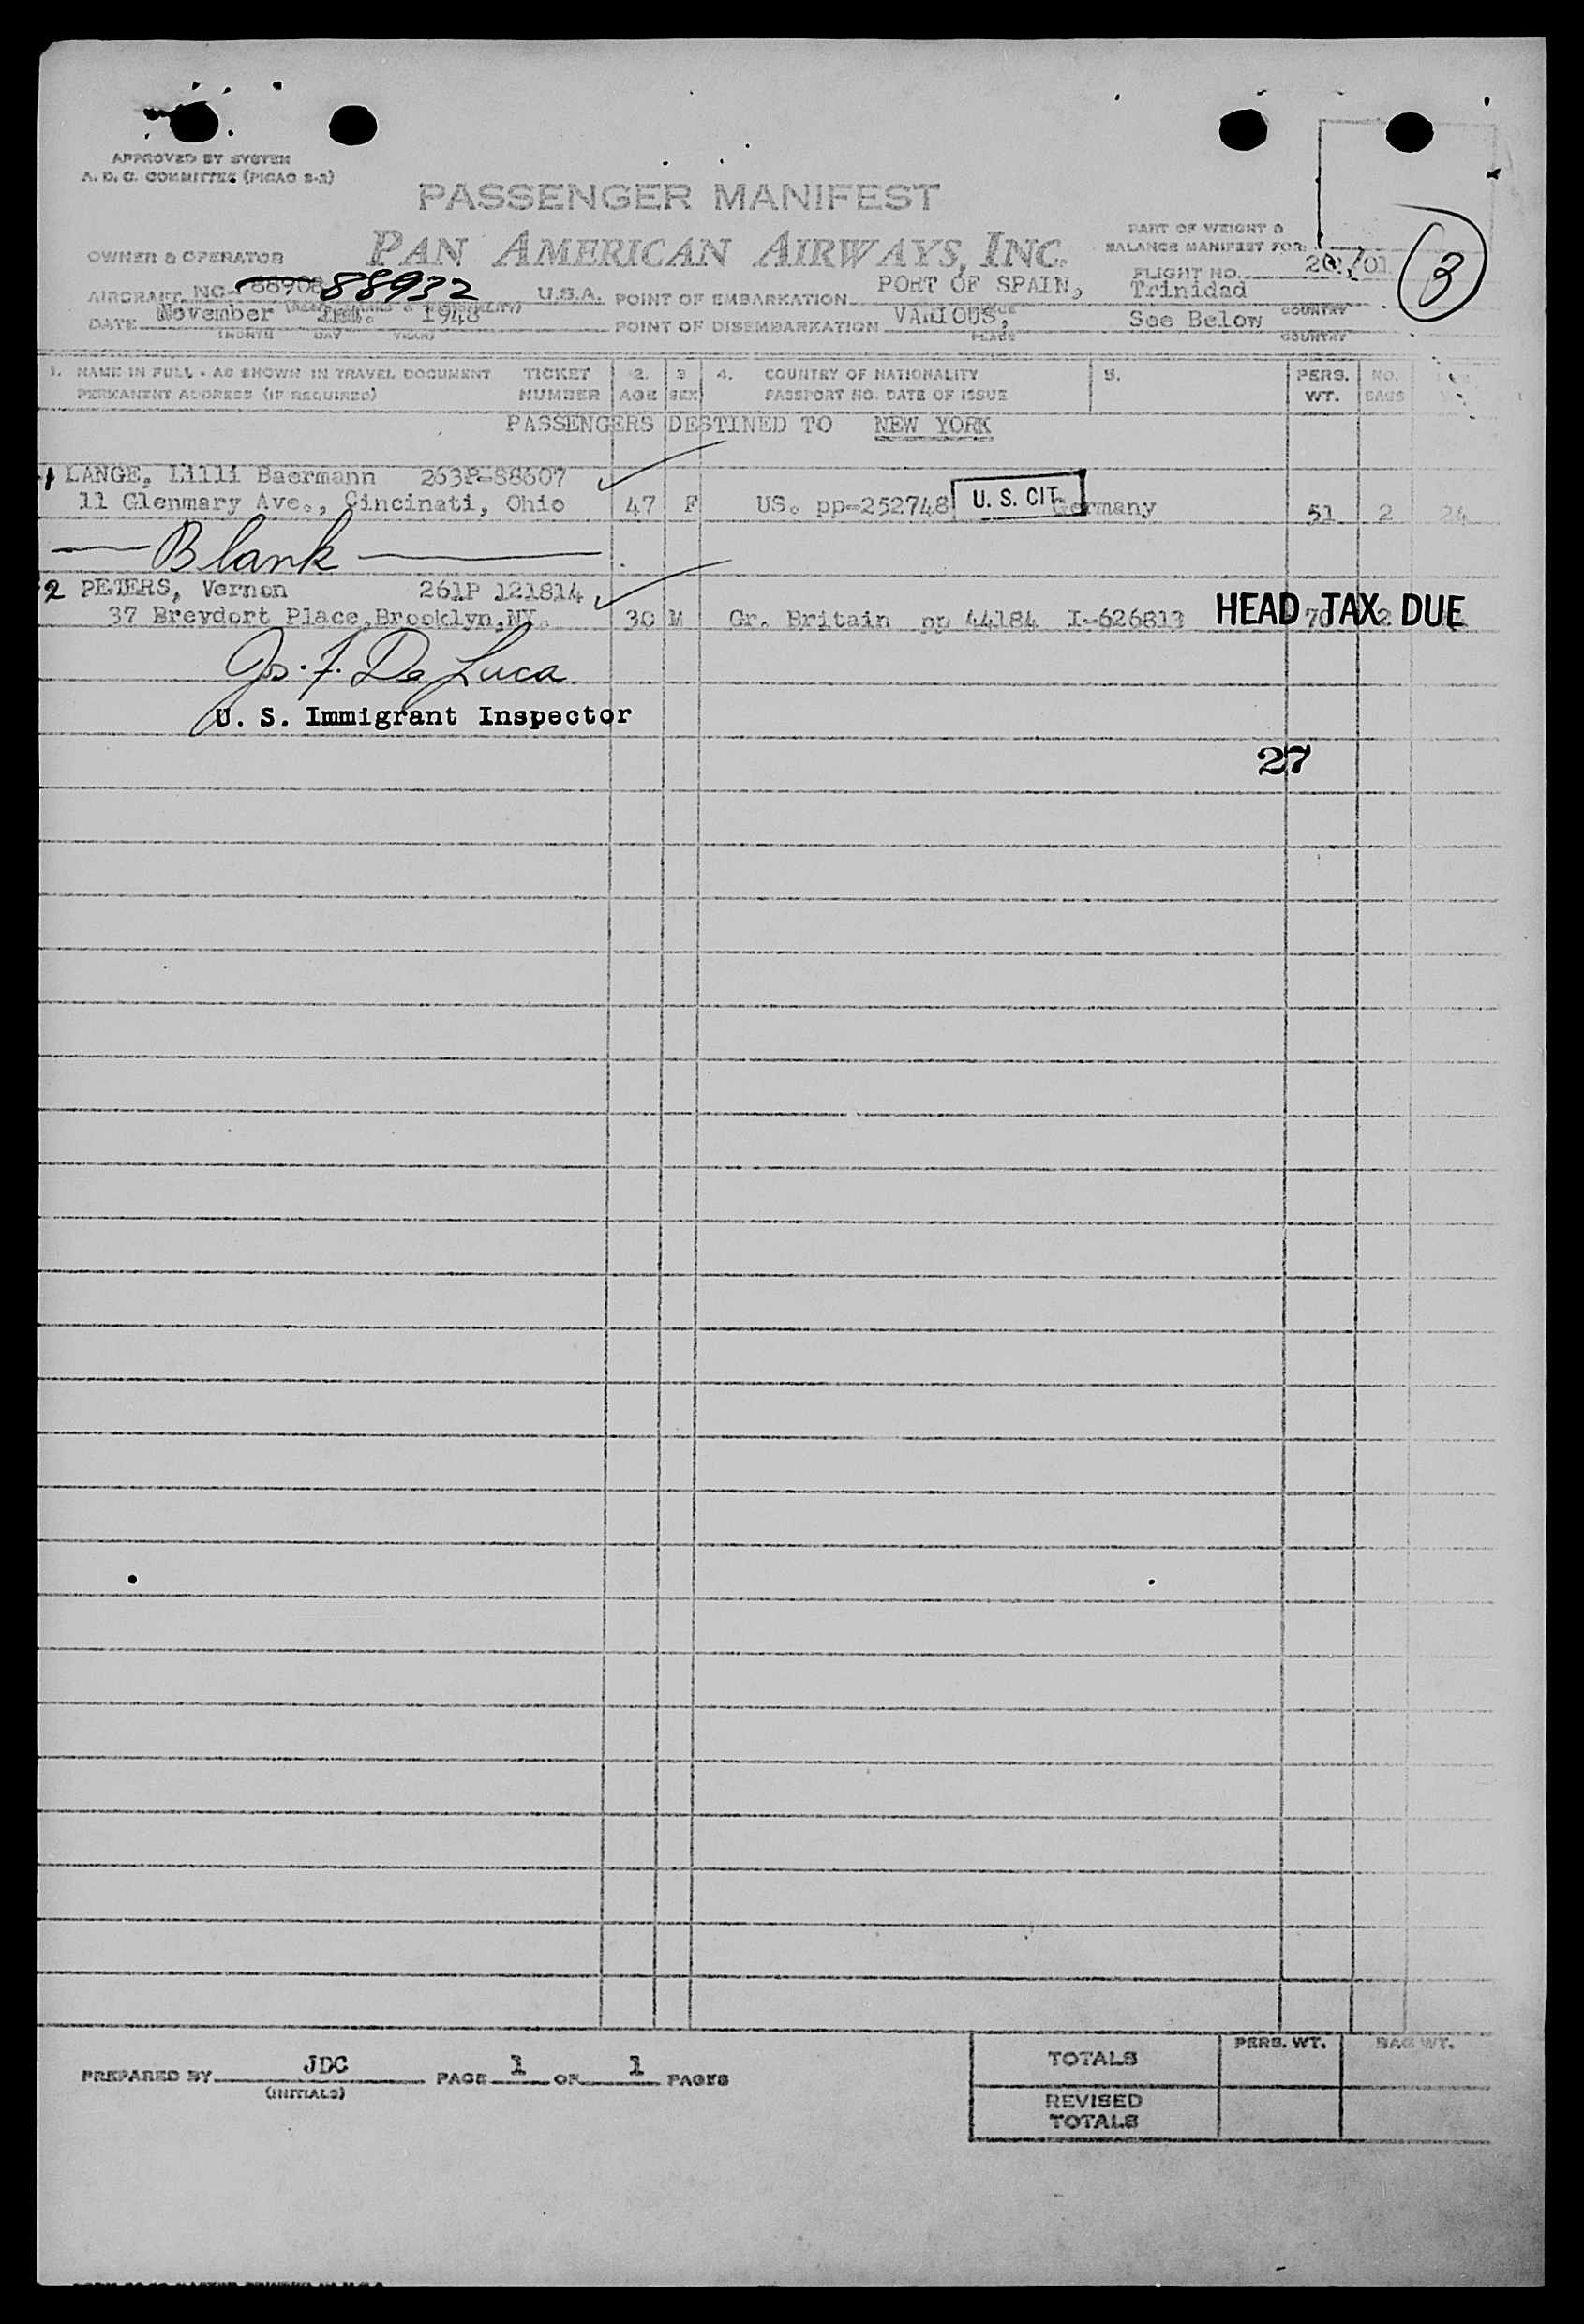 APPROVED BY SYSTEM
A. D. C. COMMITTEE (PICAO 2-2)
PASSENGER MANIFEST
PART OF WEIGHT &
BALANCE MANIFEST FOR:
OWNER & OPERATOR PAN AMERICAN AIRWAYS, INC.
FLIGHT NO. 201/01
3
AIRCRAFT NC- 88908 88932 U.S.A. POINT OF EMBARKATION PORT OF SPAIN, Trinidad
PLACE COUNTRY
DATE November 1st. 1948 POINT OF DISEMBARKATION VARIOUS, See Below
MONTH DAY YEAR PLACE COUNTRY
1. NAME IN FULL - AS SHOWN IN TRAVEL DOCUMENT TICKET 2. 3 4. COUNTRY OF NATIONALITY 5. PERS. NO.
PERMANENT ADDRESS (IF REQUIRED) NUMBER AGE SEX PASSPORT NO. DATE OF ISSUE WT. BAGS
PASSENGERS DESTINED TO NEW YORK
1 LANGE, Lilli Baermann 263P-88607
11 Glenmary Ave., Cincinati, Ohio 47 F US. pp-252748 U. S. CIT. Germany 51 2 24
Blank
2 PETERS, Vernon 261P 121814
37 Brevdort Place,Brooklyn,NY. 30 M Gr. Britain pp 44184 I-626813 70 2
HEAD TAX DUE
Jos. F. De Luca
U. S. Immigrant Inspector
27
PREPARED BY JDC PAGE 1 OF 1 PAGES
(INITIALS)
PERS. WT. BAG WT.
TOTALS
REVISED
TOTALS